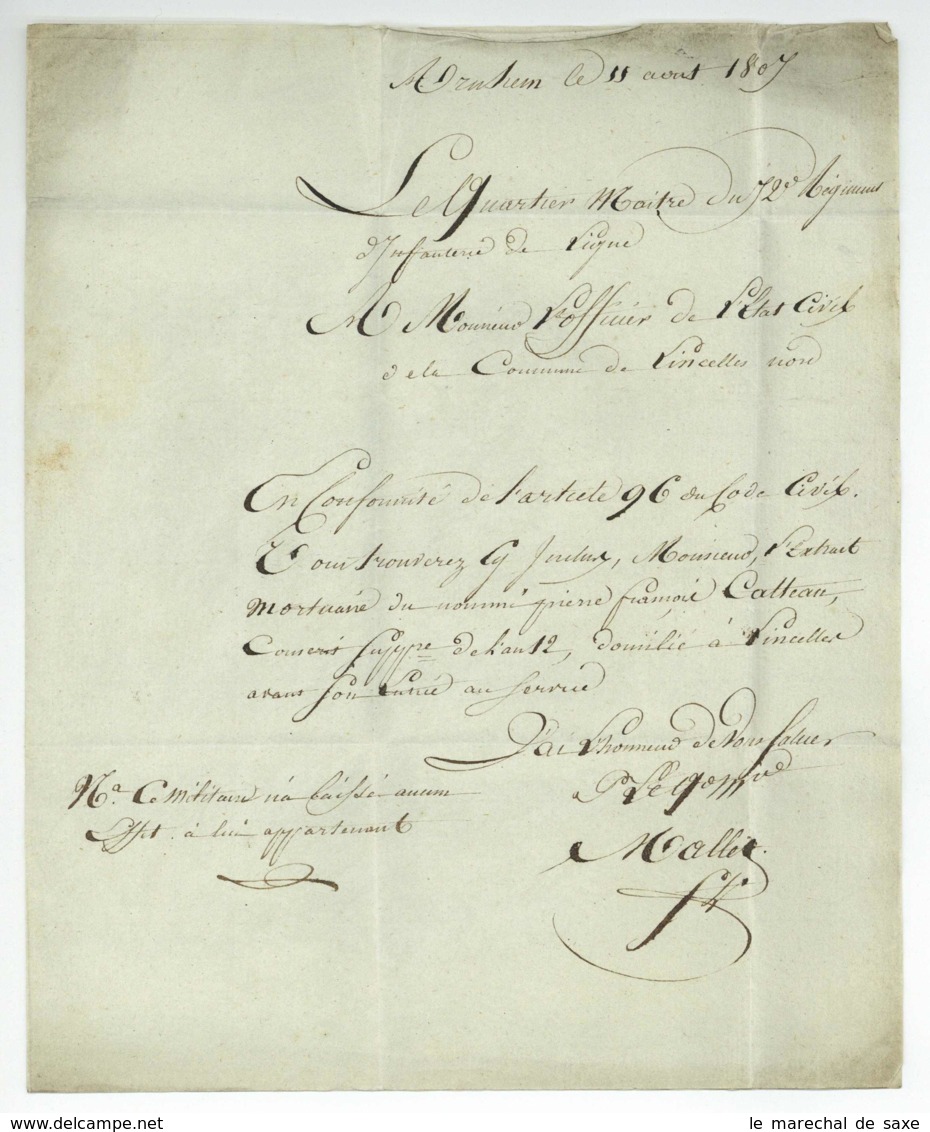 Arnhem le 11 aout 1807
Le Quartier Maitre du 72e Régiment
d'Infanterie de Ligne
A Monsieur l'officier de l'Etat Civil
de la Commune de Lincelles nord
En Conformité de l'article 96 du Code Civil.
Vous trouverez Cy Inclus, Monsieur, l'Extrait
Mortuaire du nommé pierre françois Catteau,
Conscrit Supp.re de l'an 12, domilié à Lincelles
avant son Entrée au Service
J'ai l'honneur de Vous Saluer
P. Le Qer Mtre
Mallet
Na. Ce Militaire n'a laissé aucun
Effet à lui appartenant
le marechal de saxe